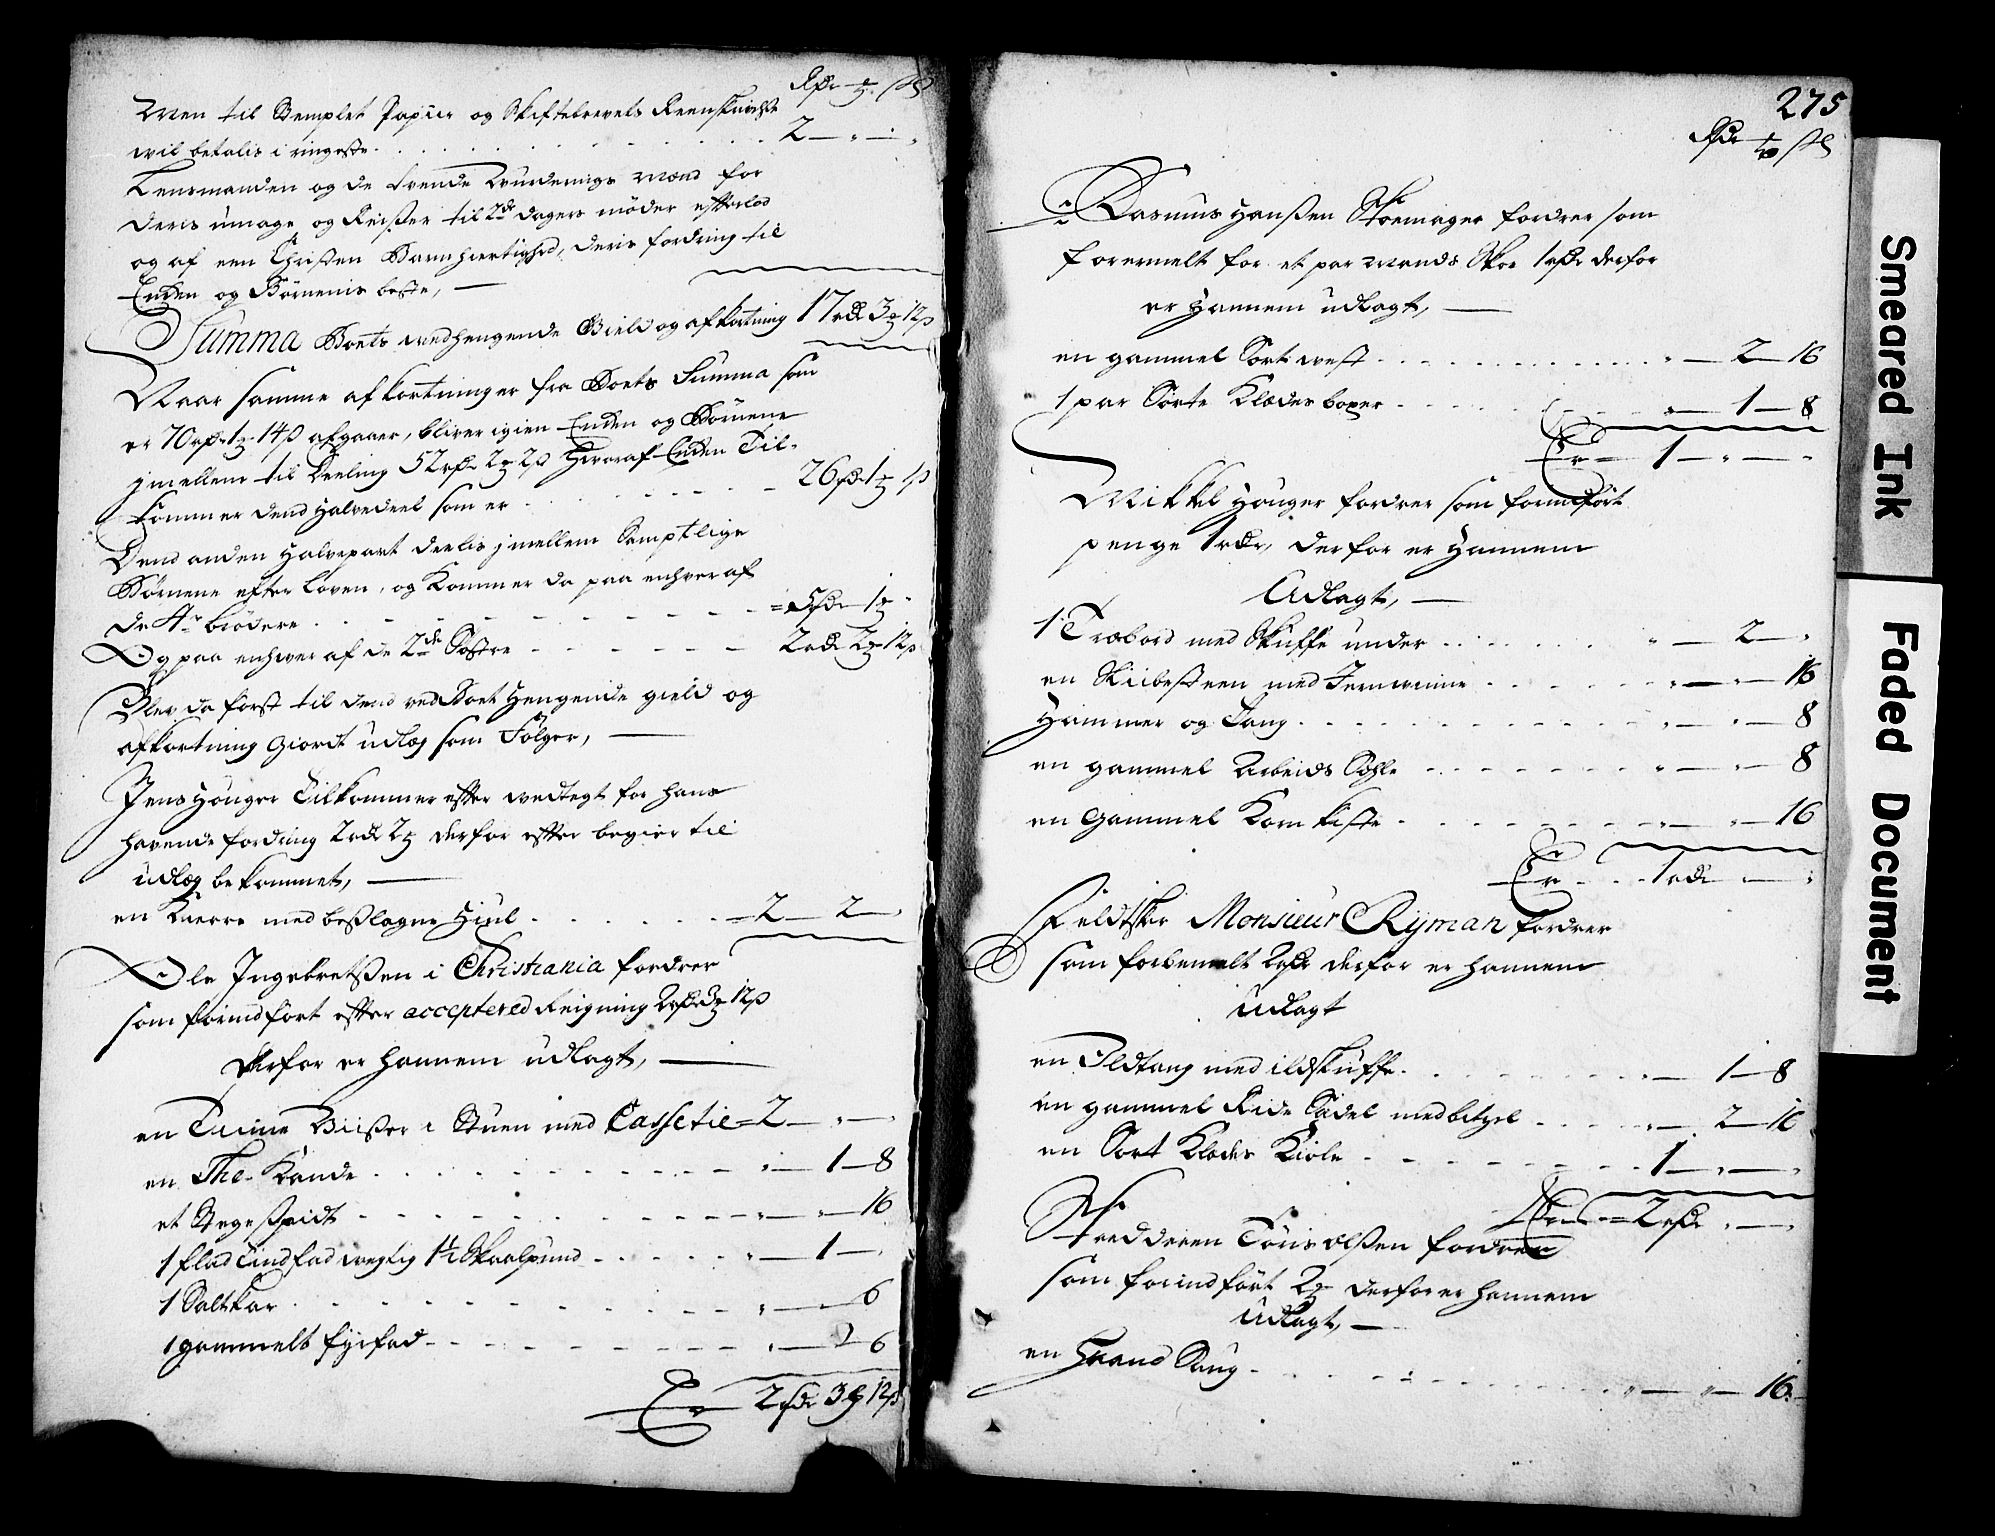 Rdr ₰ ß
Men til Stemplet Papiir og Skiftebrevets Reenskrift
vil betalis i ringeste. 2
Lensmanden og de tvende Vurderings Mænd for
deris umage og Reiser til 2de dagers møder efterlod
og af een Christen Barmhiertighed, deris fordring til
Enken og Børnenis beste,
Summa Boets vedhengende Gield og afkortning 17 rdr 3 12 ß
Naar samme afkortninger fra Boets Summa som
er 70 rdr 1 14 ß afgaaer, bliver igien Enken og Børnene
imellem til Deeling 52 rdr 2 2 ß Hvoraf Enken Til-
kommer dend Halvedeel som er 26 rdr 1 1 ß
Dend anden Halvepart deelis imellem Samptlige
Børnene efter Loven, og kommer da paa enhver af
de 4re brødere 5 rdr 1
Og paa enhver af de 2de Søstre 2 rdr 2 12 ß
Blev da først til dend ved Boet Hengende gield og
afkortning Giordt udlæg som Følger,
Jens Houger Tilkommer efter vedtegt for hans
havende fordring 2 rdr 2 derfor efter begier til
udlæg bekommet,
en Kierre med beslagne Hiul 2 2
Ole Ingebretsen i Christiania fordrer
som forindført efter acceptered Reigning 2 rdr 3 12 ß
derfor er hannem udlagt,
en 2
en The-Kande 1 8
et Stegespidt 16
1 flad Tindfad vegtig 1½ Skaalpund 1
1 Saltkar 6
1 gammelt fyrfad 6
Er 2 rdr 3 12 ß
275
Rdr ß
Rasmus Hansen Skoemager fordrer som
formelt for et par Mands Skoe 1 rdr derfor
er Hannem udlagt,
en gammel Sort vest 2 16
1 par Sorte Klædes boxer 1 8
Er 1
Mikkel Houger fordrer som forindført
penge 1 rdr, derfor er Hannem
Udlagt,
1 Træbord med Skuffe under 2
en Sliibesteen med Jern 16
Hammer og Tang 8
en gammel Arbeids Sæhle 8
en Gammel Korn kiste 16
Er 1 rdr
Feldtsker Monsieur Ryman fordrer
som forbemelt 2 rdr derfor er hannem
udlagt
en Ildtang med ildskuffe 1 8
en gammel Ride Sadel med 2 16
en Sort Klædes Kiole 1
Er 2 rdr
Skredderen Olsen fordrer
som forindført 2 derfor er hannem
Udlagt,
en Haand Saug 16
Smeared Ink
Faded Document